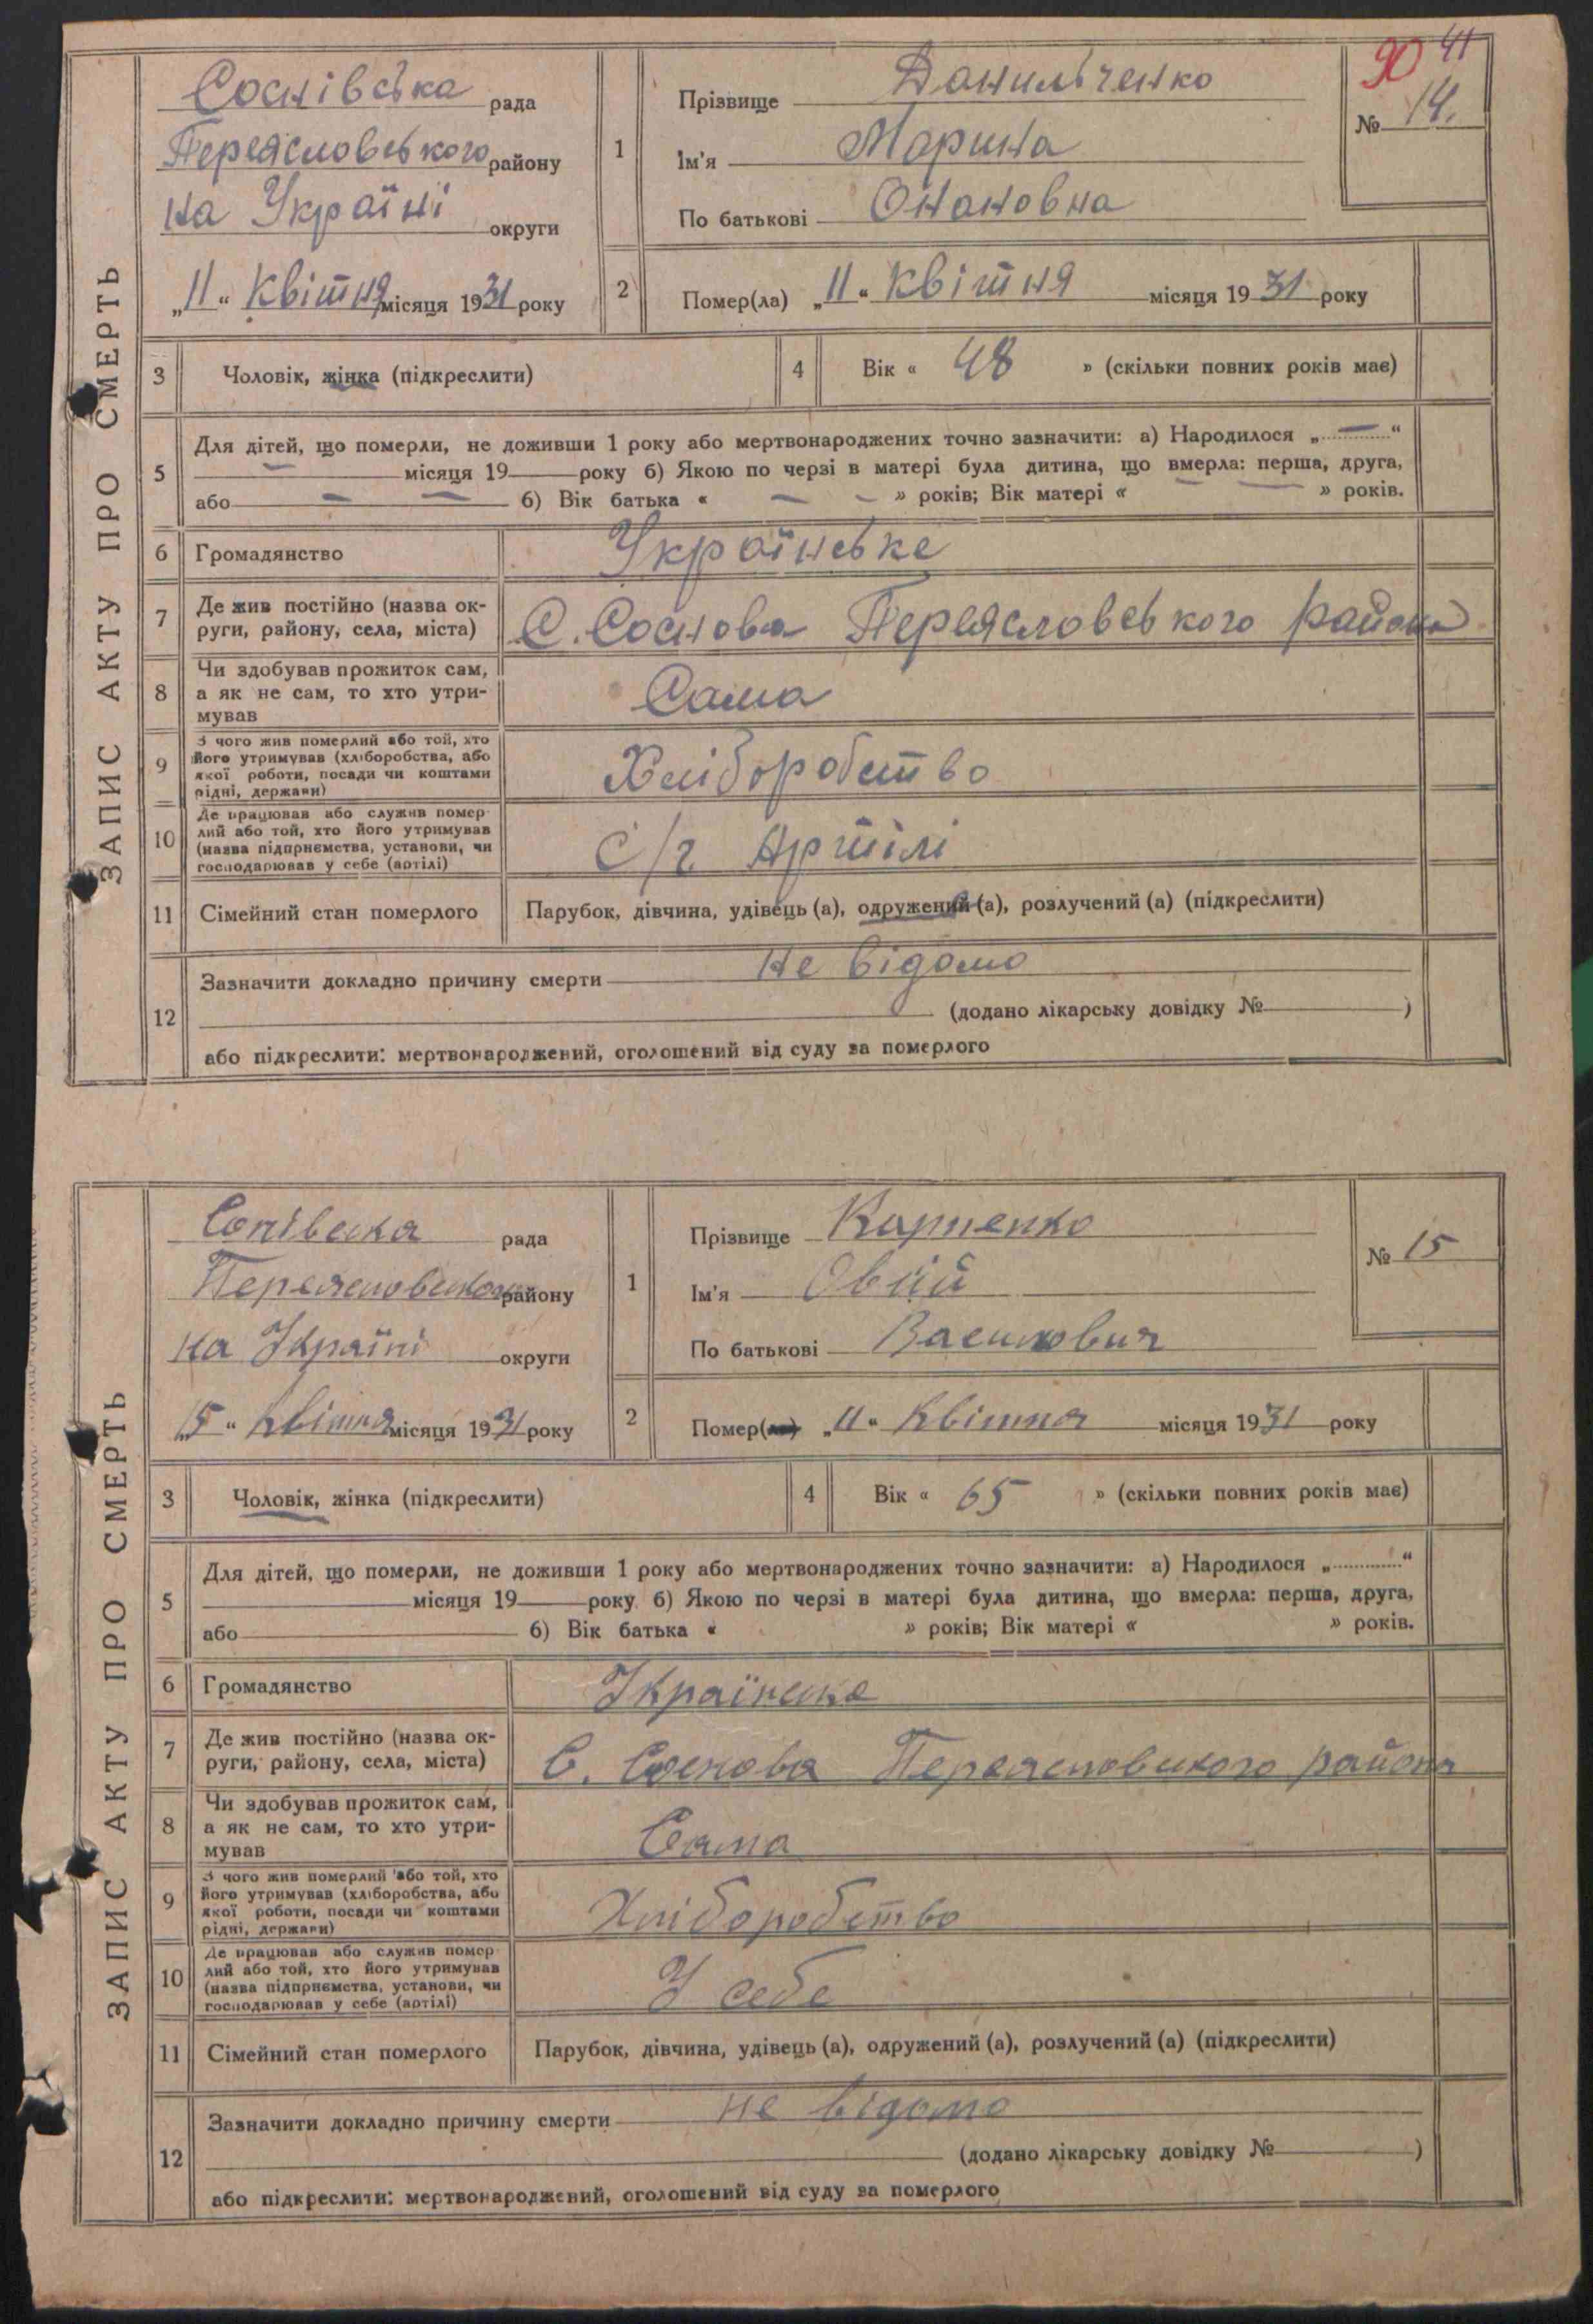 ЗАПИС АКТУ ПРО СМЕРТЬ
90 41
Соснівська рада
Переясловського району
на Україні округи
„11“ Квітня місяця 1931 року
1
Прізвище Данильченко
Ім'я Марина
По батькові Онановна
№ 14.
2
Помер(ла) „11“ Квітня місяця 1931 року
3 Чоловік, жінка (підкреслити)
4 Вік « 48 » (скільки повних років має)
5 Для дітей, що померли, не доживши 1 року або мертвонароджених точно зазначити: а) Народилося „— “
— місяця 19 року б) Якою по черзі в матері була дитина, що вмерла: перша, друга,
або — — б) Вік батька « — — » років; Вік матері « — — » років.
6 Громадянство Українське
7 Де жив постійно (назва ок-
руги, району, села, міста) С. Соснова Переясловського района
8 Чи здобував прожиток сам,
а як не сам, то хто утри-
мував Сама
9 З чого жив померлий або той, хто
його утримував (хліборобства, або
якої роботи, посади чи коштами
рідні, держави) Хліборобство
10 Де працював або служив помер-
лий або той, хто його утримував
(назва підприємства, установи, чи
господарював у себе (артілі) С/г Артілі
11 Сімейний стан померлого Парубок, дівчина, удівець (а), одружений (а), розлучений (а) (підкреслити)
12 Зазначити докладно причину смерти не відомо
(додано лікарську довідку № )
або підкреслити: мертвонароджений, оголошений від суду за померлого
ЗАПИС АКТУ ПРО СМЕРТЬ
рада
Переясловського району
на Україні округи
„15“ Квітня місяця 1931 року
1
Прізвище Карпенко
Ім'я Овсій
По батькові Василович
№ 15
2
Помер(ла) „11“ Квітня місяця 1931 року
3 Чоловік, жінка (підкреслити)
4 Вік « 65 » (скільки повних років має)
5 Для дітей, що померли, не доживши 1 року або мертвонароджених точно зазначити: а) Народилося „ “
місяця 19 року б) Якою по черзі в матері була дитина, що вмерла: перша, друга,
або б) Вік батька « » років; Вік матері « » років.
6 Громадянство Українське
7 Де жив постійно (назва ок-
руги, району, села, міста) С. Соснова Переясловського района
8 Чи здобував прожиток сам,
а як не сам, то хто утри-
мував Сама
9 З чого жив померлий або той, хто
його утримував (хліборобства, або
якої роботи, посади чи коштами
рідні, держави) Хліборобство
10 Де працював або служив помер-
лий або той, хто його утримував
(назва підприємства, установи, чи
господарював у себе (артілі) У себе
11 Сімейний стан померлого Парубок, дівчина, удівець (а), одружений (а), розлучений (а) (підкреслити)
12 Зазначити докладно причину смерти не відомо
(додано лікарську довідку № )
або підкреслити: мертвонароджений, оголошений від суду за померлого